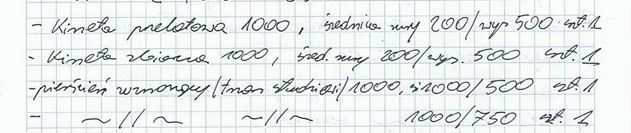 - Kineta przelotowa 1000, średnica rury 200/wys 500 szt. 1
- Kineta zbiorcza 1000, śred. rury 200/wys. 500 szt. 1
- pierścień wznoszący /trzon studzienki/ 1000, i 1000/500 szt. 1
- ~//~ ~//~ 1000/750 szt. 1